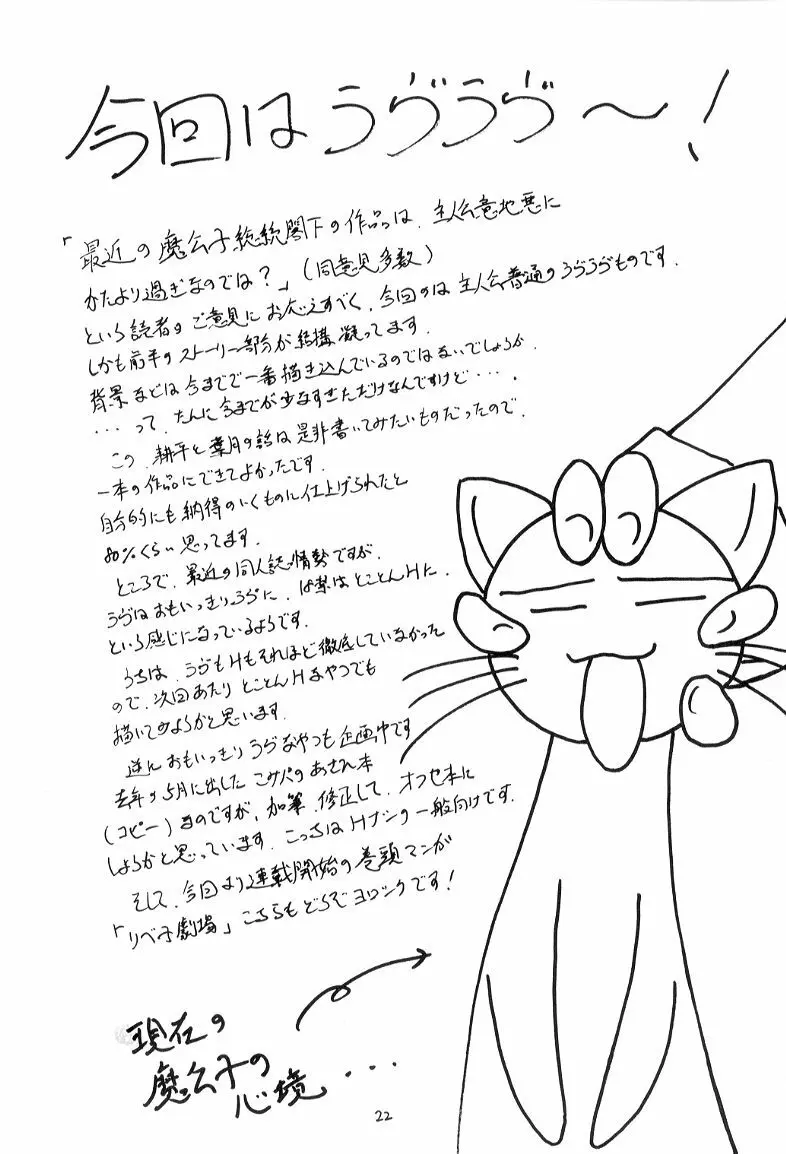 今回はうづうづ〜!
「最近の魔公子総統閣下の作品は、主人公意地悪に
かたより過ぎなのでは?」(同意見多数)
という読者のご意見にお応えすべく、今回のは主人公普通のうづうづものです。
しかも前半のストーリー部分が結構凝ってます。
背景などは今までで一番描き込んでいるのではないでしょうか。
・・・って、たんに今までが少なすぎただけなんですけど・・・。
この、耕平と葉月の話は是非書いてみたいものだったので、
一本の作品にできてよかったです。
自分的にも納得のいくものに仕上げられたと
80%くらい思ってます。
ところで、最近の同人誌情勢ですが、
うづはおもいっきりうづに、はとことんHに、
という感じになっているようです。
うちは、うづもHもそれほど徹底していなかった
ので、次回あたりとことんHなやつでも
描いてみようかと思います。
逆におもいっきりうづなやつも企画中です
去年の5月に出したこみパのあさひ本
(コピー)なのですが、加筆、修正して、オフセ本に
しようかと思っています。こっちはHナシの一般向けです。
そして、今回より連載開始の巻頭マンガ
「リべ子劇場」こちらもどうぞヨロシクです!
現在の
魔公子の
心境・・・
22